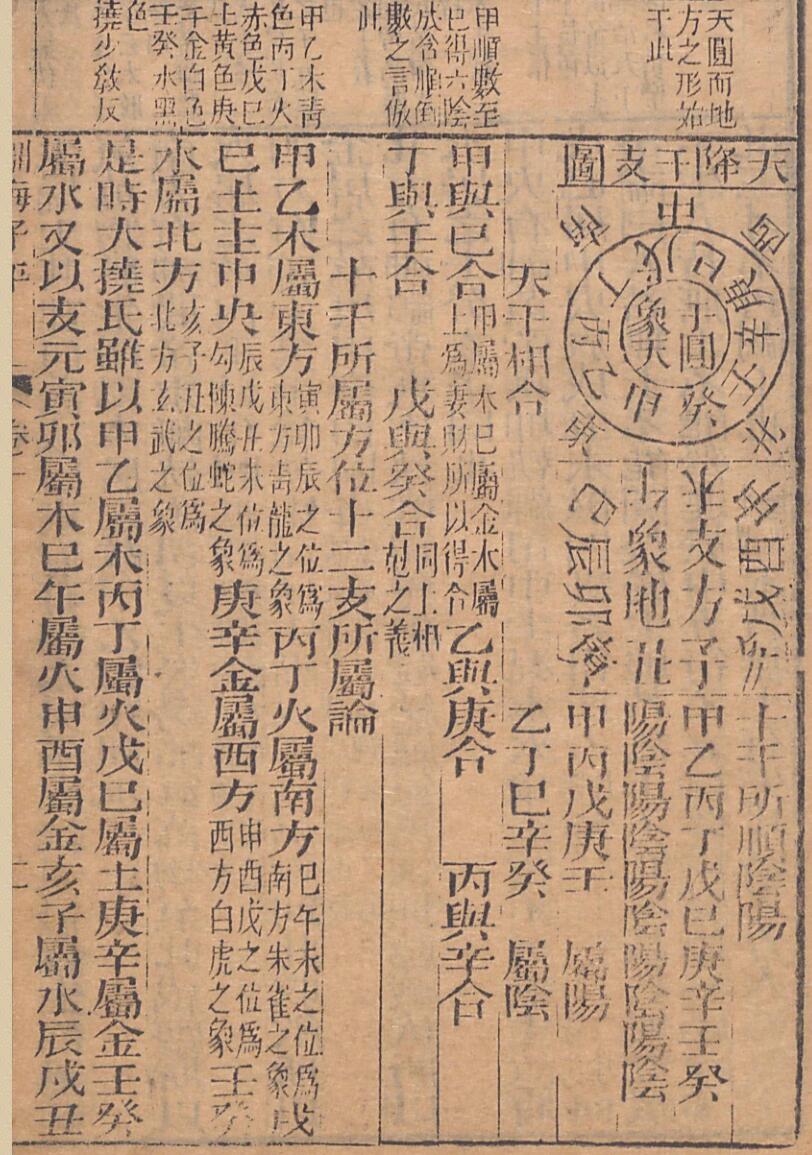 天圓而地
方之形始
于此
甲順數至
巳得六陰
數之言倣
此
甲乙木青
色丙丁火
赤色戊巳
土黃色庚
辛金白色
壬癸水黑
色
撓少敎反
天降干支圖
中
干圓
象天
甲乙丙丁戊巳庚辛壬癸
支方
象地
子丑
卯辰巳
酉戌
十干所順陰陽
甲乙丙丁戊巳庚辛壬癸
陽陰陽陰陽陰陽陰陽陰
甲丙戊庚壬 屬陽
乙丁巳辛癸 屬陰
天干相合
甲與巳合甲屬木巳屬金木屬土爲妻財所以得合乙與庚合 丙與辛合
丁與壬合 戊與癸合同上相尅之義
十干所屬方位十二支所屬論
甲乙木屬東方寅卯辰之位爲東方靑龍之象丙丁火屬南方巳午未之位爲南方朱雀之象戊
巳土主中央辰戌丑未位爲勾陳騰蛇之象庚辛金屬西方申酉戌之位爲西方白虎之象壬癸
水屬北方亥子丑之位爲北方玄武之象
是時大撓氏雖以甲乙屬木丙丁屬火戊巳屬土庚辛屬金壬癸
屬水又以支元寅卯屬木巳午屬火申酉屬金亥子屬水辰戌丑
淵海子平 卷一 二